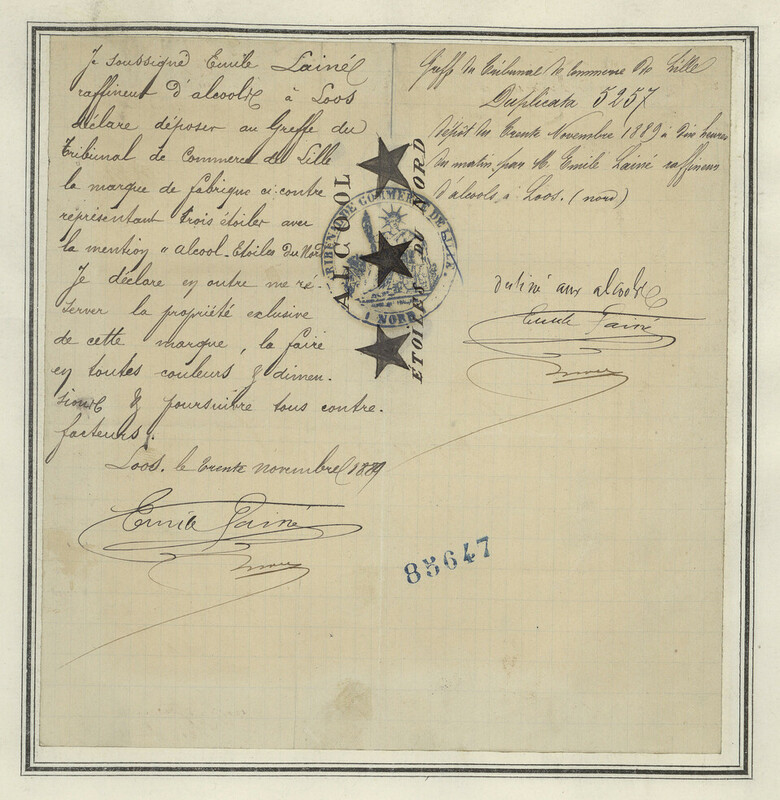 Je soussigné Emile Lainé
raffineur d'alcools à Loos
déclare déposer au Greffe du
Tribunal de Commerce de Lille
la marque de fabrique ci contre
représentant trois étoiles avec
la mention "Alcool. Etoiles du Nord
Je déclare en outre me ré-
server la propriété exclusive
de cette marque, la faire
en toutes couleurs & dimen-
sions & poursuivre tous contre-
facteurs.
Loos. le trente novembre 1889
Emile Lainé
ALCOOL
ÉTOILES DU NORD
TRIBUNAL DE COMMERCE DE LILLE
NORD
Greffe du Tribunal de Commerce de Lille
Duplicata 5257
dépôt du trente Novembre 1889 à dix heures
du matin par M. Emile Lainé raffineur
d'alcools à Loos. (nord)
destiné aux alcools
Emile Lainé
85647